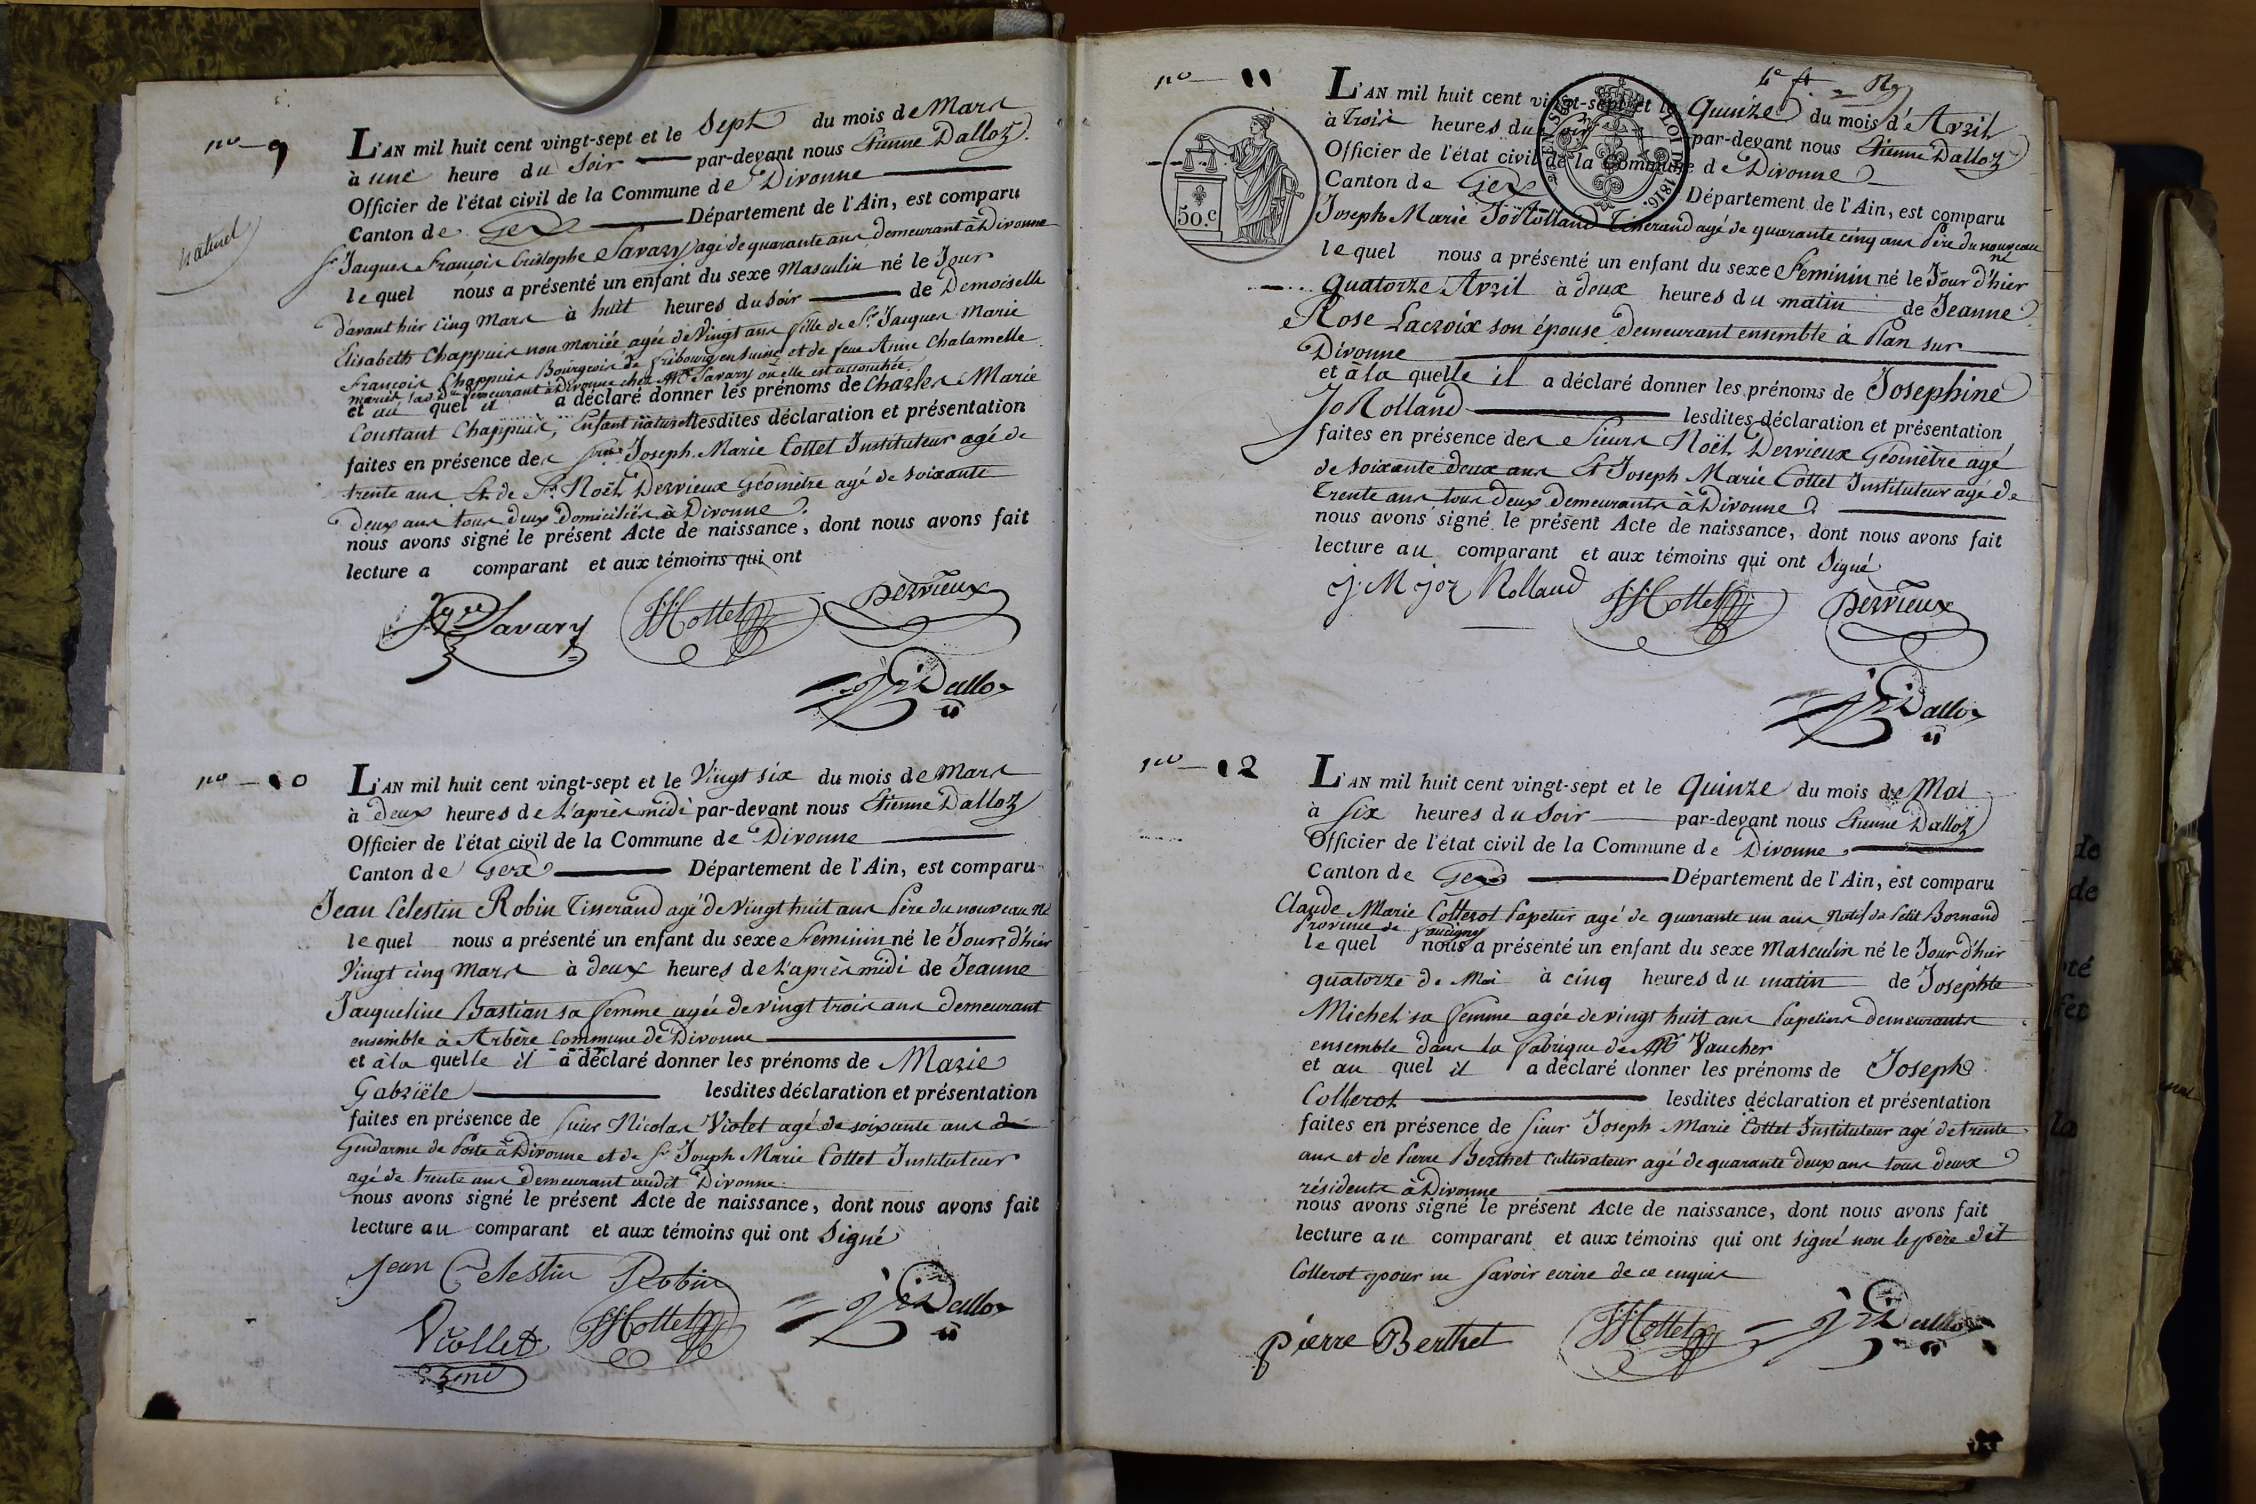 nº 9
naturel
L'AN mil huit cent vingt-sept et le Sept du mois de Mars
à une heure du Soir par-devant nous Etienne Dalloz
Officier de l'état civil de la Commune de Divonne
Canton de Gex Département de l'Ain, est comparu
Sr Jacques François Cristophe Savary agé de quarante ans demeurant à Divonne
le quel nous a présenté un enfant du sexe Masculin né le Jour
d'avant hier Cinq Mars à huit heures du soir de Demoiselle
Elisabeth Chappuis non mariée agée de Vingt ans fille de Sr Jacques Marie
François Chappuis Bourgeois de fribourg en Suisse et de feue Anne Chalamelle
mariés demeurant à Divonne chez Mr Savary où elle est accouchée
et au quel il a déclaré donner les prénoms de Charles Marie
Constant Chappuis, Enfant naturel lesdites déclaration et présentation
faites en présence des Srs Joseph Marie Cottet Instituteur agé de
trente ans Et de Sr Noël Derrieux Géomètre agé de soixante
Deux ans tous deux Domiciliés à Divonne.
nous avons signé le présent Acte de naissance, dont nous avons fait
lecture a comparant et aux témoins qui ont
Jques Savary JMCottet Derrieux
Dalloz
nº 10
L'AN mil huit cent vingt-sept et le Vingt six du mois de Mars
à Deux heures de L'après midi par-devant nous Etienne Dalloz
Officier de l'état civil de la Commune de Divonne
Canton de Gex Département de l'Ain, est comparu
Jean Célestin Robin Tisserand agé de Vingt huit ans Père du nouveau né
le quel nous a présenté un enfant du sexe Feminin né le Jour d'hier
Vingt cinq Mars à deux heures de L'après midi de Jeanne
Jacqueline Bastian sa femme agée de vingt trois ans demeurant
ensemble à Arbère Commune de Divonne
et à la quelle il a déclaré donner les prénoms de Marie
Gabriële lesdites déclaration et présentation
faites en présence de sieur Nicolas Violet agé de soixante ans
Gendarme de Poste à Divonne et de Sr Joseph Marie Cottet Instituteur
agé de trente ans demeurant audit Divonne.
nous avons signé le présent Acte de naissance, dont nous avons fait
lecture au comparant et aux témoins qui ont Signé
Jean Celestin Robin
Viollet JMCottet Dalloz
nº 11
50.C
LOI DE 1816.
L'AN mil huit cent vingt-sept et le Quinze du mois d'Avril
à trois heures du Soir par-devant nous Etienne Dalloz
Officier de l'état civil de la Commune de Divonne
Canton de Gex Département de l'Ain, est comparu
Joseph Marie JoRolland Tisserand agé de quarante cinq ans Père du nouveau né
le quel nous a présenté un enfant du sexe Feminin né le Jour d'hier
Quatorze Avril à deux heures du matin de Jeanne
Rose Lacroix son épouse demeurant ensemble à Plan sur
Divonne
et à la quelle il a déclaré donner les prénoms de Josephine
JoRolland lesdites déclaration et présentation
faites en présence des Sieurs Noël Derrieux Géomètre agé
de soixante deux ans Et Joseph Marie Cottet Instituteur agé de
Trente ans tous deux demeurants à Divonne
nous avons signé le présent Acte de naissance, dont nous avons fait
lecture au comparant et aux témoins qui ont Signé
j. M jor Rolland JMCottet Derrieux
Dalloz
nº 12
L'AN mil huit cent vingt-sept et le Quinze du mois de Mai
à six heures du Soir par-devant nous Etienne Dalloz
Officier de l'état civil de la Commune de Divonne
Canton de Gex Département de l'Ain, est comparu
Claude Marie Collerot Papetier agé de quarante un ans Natif du Petit Bornand
Province de faucigny
le quel nous a présenté un enfant du sexe Masculin né le Jour d'hier
quatorze de Mai à cinq heures du matin de Josephte
Michel sa femme agée de vingt huit ans Papetiers demeurants
ensemble dans la fabrique de Mr Vaucher
et au quel il a déclaré donner les prénoms de Joseph
Collerot lesdites déclaration et présentation
faites en présence de sieur Joseph Marie Cottet Instituteur agé de trente
ans et de Pierre Berthet Cultivateur agé de quarante deux ans tous deux
résidents à Divonne
nous avons signé le présent Acte de naissance, dont nous avons fait
lecture au comparant et aux témoins qui ont signé non le père dit
Collerot pour ne savoir ecrire de ce enquis
pierre Berthet JMCottet Dalloz